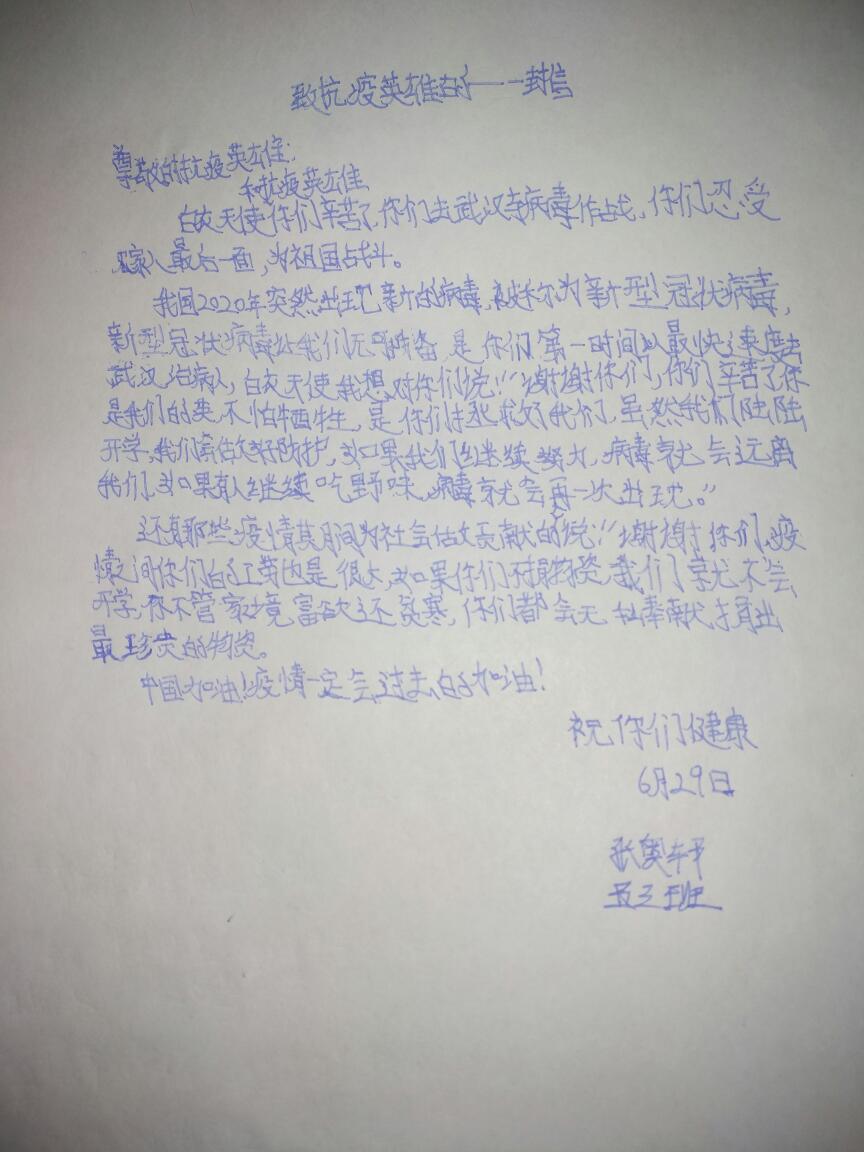 致抗疫英雄的一封信
尊敬的抗疫英雄:
和抗疫英雄
白衣天使你们辛苦了,你们去武汉与病毒作战,你们忍受
家人最后一面,为祖国战斗。
我国2020年突然出现新的病毒,被称为新型冠状病毒,
新型冠状病毒让我们无可防备,是你们第一时间以最快速度去
武汉治病人,白衣天使我想对你们说!“谢谢你们,你们辛苦了你
是我们的 不怕牺牲,是你们拯救了我们,虽然我们陆陆
开学,我们会做好防护,如果我们继续努力,病毒就会远离
我们,如果有人继续吃野味,病毒就会再一次出现。”
还有那些疫情其期间为社会做贡献的说!“谢谢你们,疫
情之间你们的工劳也是很大,如果你们不捐物资,我们就不会
开学,你不管家境富欲还贫寒,你们都会无私奉献,捐出
最珍贵的物资。
中国加油!疫情一定会过去的加油!
祝你们健康
6月29日
张奥轩
五三班